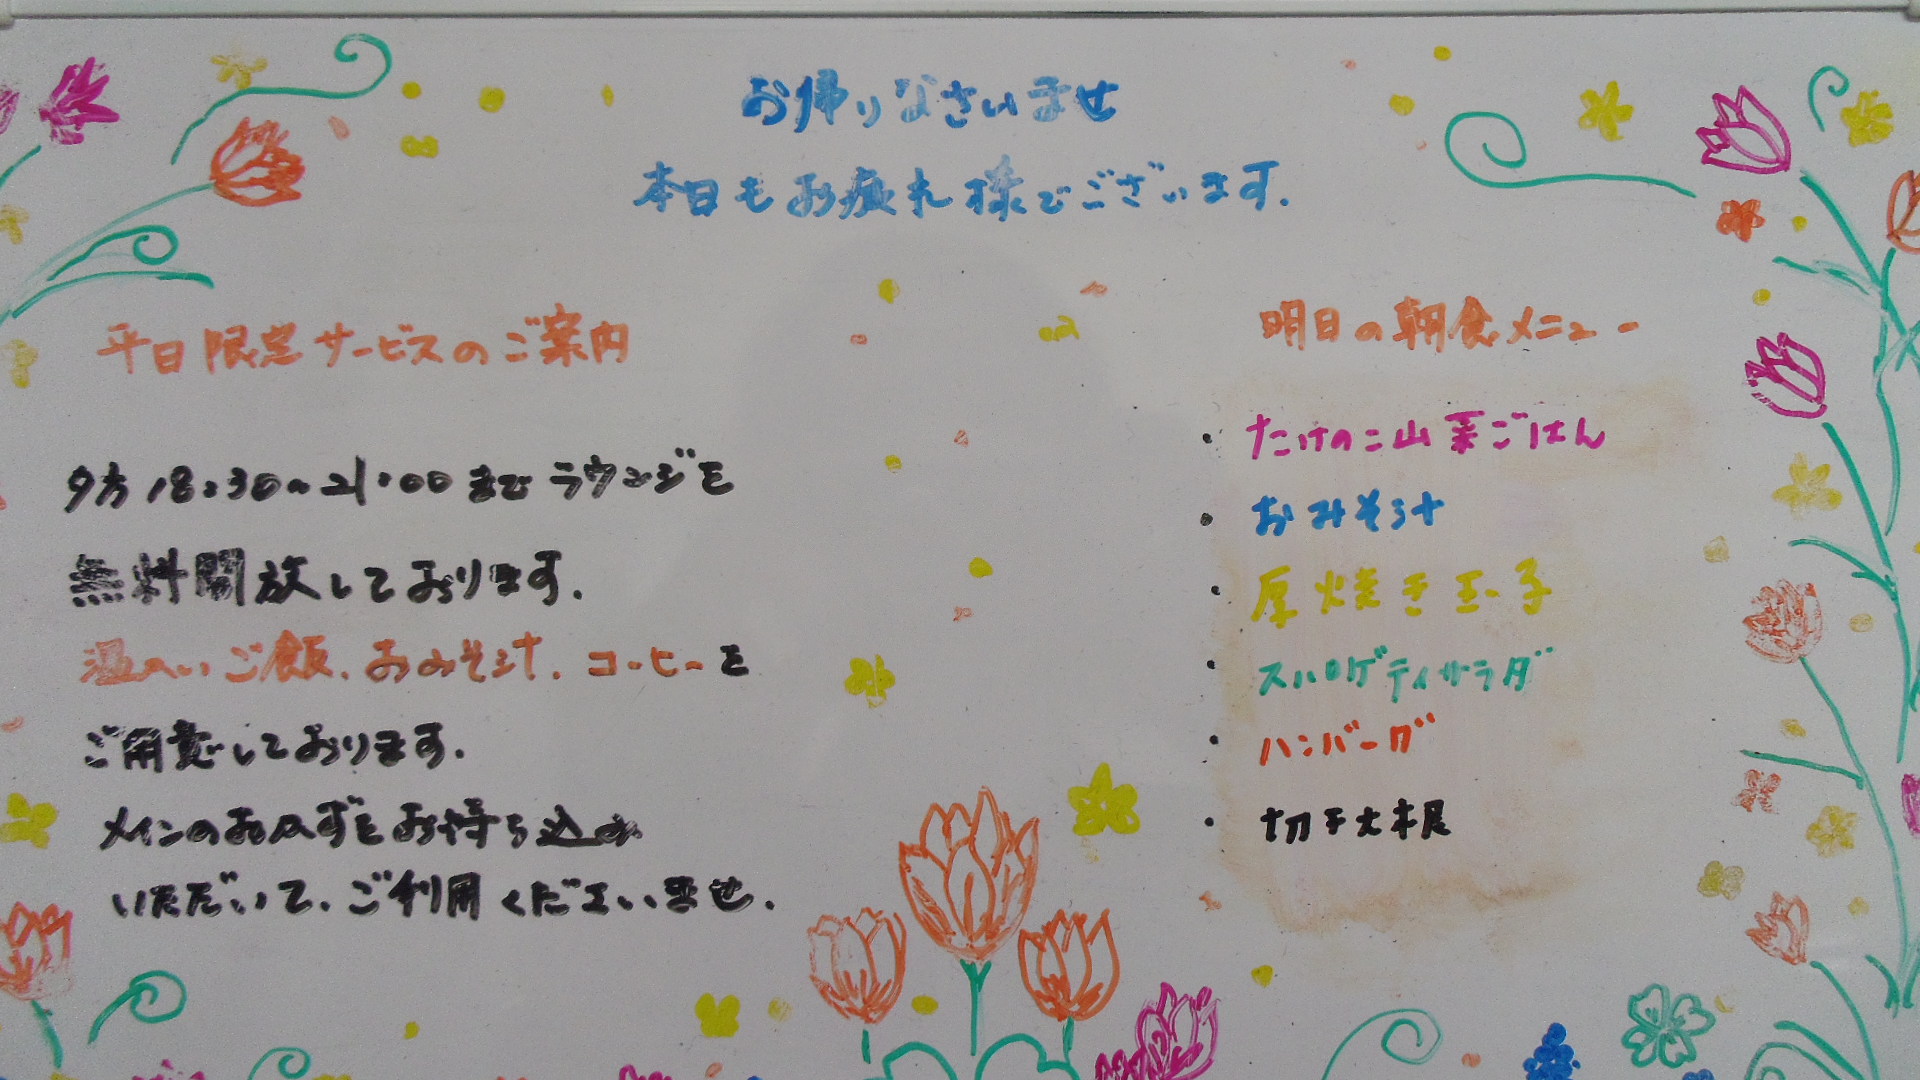 お帰りなさいませ
本日もお疲れ様でございます.
平日限定サービスのご案内
夕方18:30~21:00までラウンジを
無料開放しております.
温かいご飯、おみそ汁、コーヒーを
ご用意しております.
メインのおかずをお持ち込み
いただいて、ご利用くださいませ.
明日の朝食メニュー
・たけのこ山菜ごはん
・おみそ汁
・厚焼き玉子
・スパゲティサラダ
・ハンバーグ
・切干大根